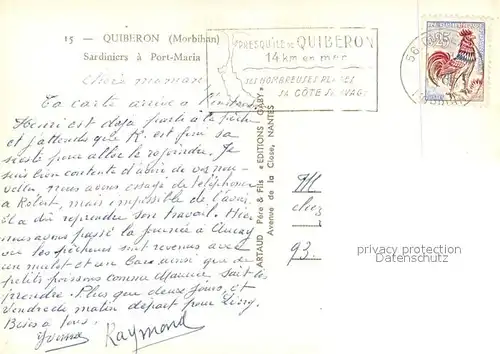 15 — QUIBERON (Morbihan)
Sardiniers à Port-Maria
PRESQU'ILE DE QUIBERON
14 km en mer
SES NOMBREUSES PLAGES
SA CÔTE SAUVAGE
56
chère maman
Ta carte arrive à l'instant
Henri est déjà parti à la pêche
et j'attends que R. est fini sa
sieste pour aller le rejoindre. Je
suis bien contente d'avoir de vos nou-
velles. nous avons essayé de téléphoner
à Robert, mais impossible de l'avoir
Il a dû reprendre son travail. Hier
nous avons passé la journée à
ou les pêcheurs sont revenus avec
un mulet et un ainsi que de
petits poissons comme Maurice sait les
prendre. Plus que deux jours, et
vendredi matin départ pour
Bises à tous.
Yvonne Raymond
ARTAUD Père & Fils «EDITIONS GABY»
Avenue de la Close, NANTES
M
chez
93.
copyright protected
Datenschutz.